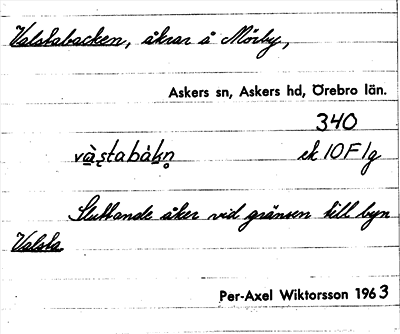 Valstabacken, åkrar å Mörby,
Askers sn, Askers hd, Örebro län.
340
vàstabàkn̥ ek 10F1g
Sluttande åker vid gränsen till byn
Valsta.
Per-Axel Wiktorsson 1963